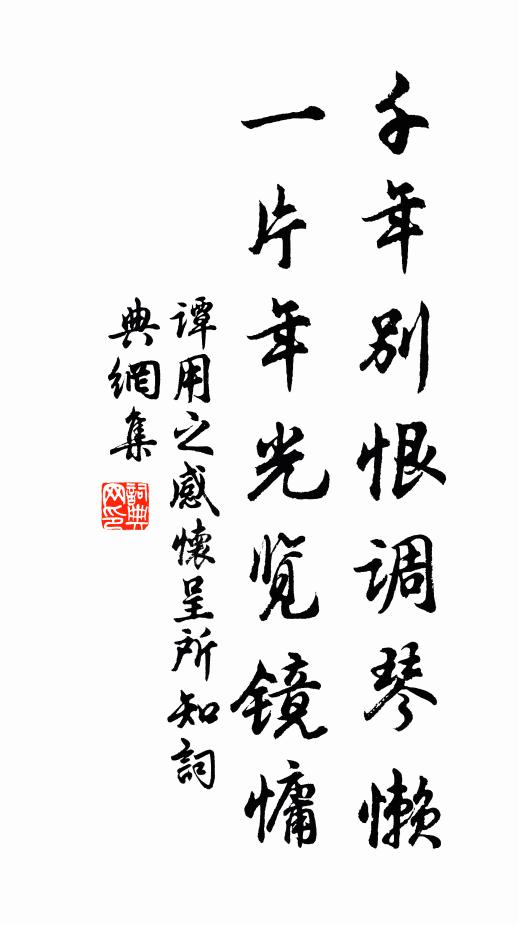 千年别恨调琴懒
一片年光览镜慵
谭用之感懷呈所知詞
典網集
詞典网印